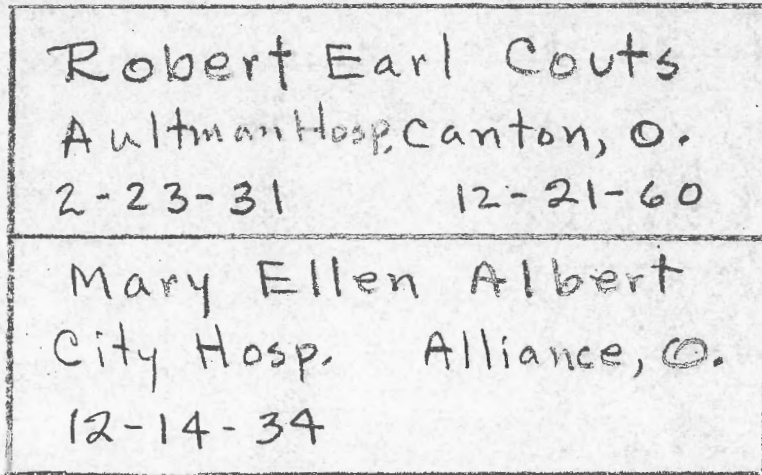 Robert Earl Couts
Aultman Hosp. Canton, O.
2-23-31 12-21-60
Mary Ellen Albert
City Hosp. Alliance, O.
12-14-34